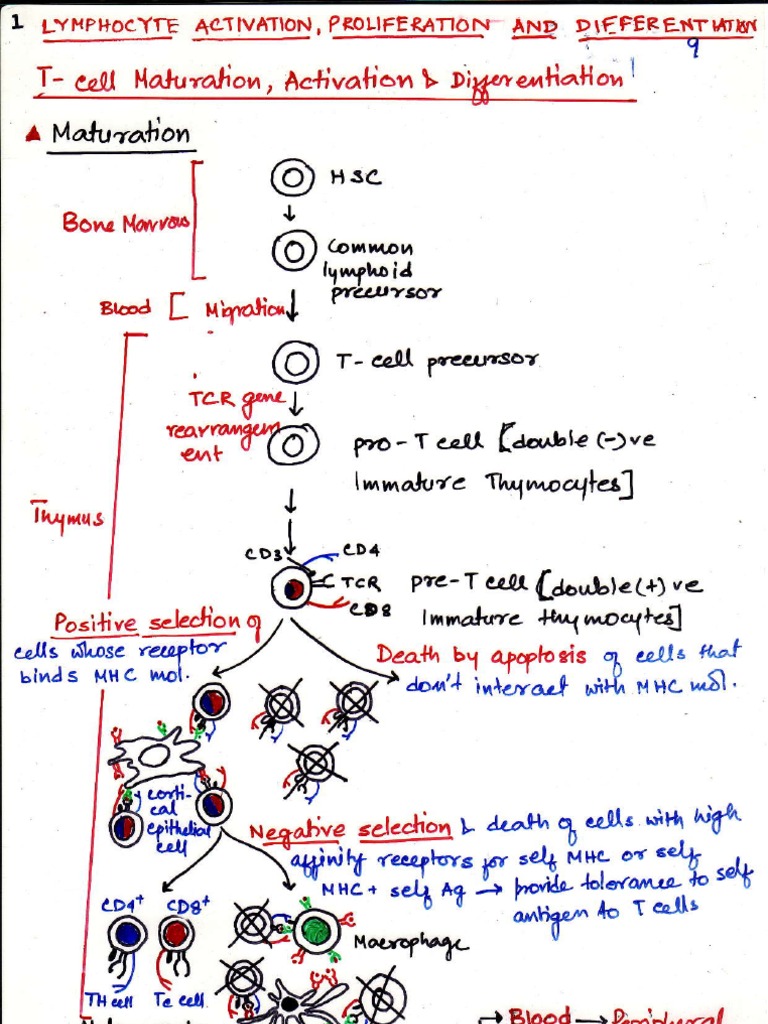 1 LYMPHOCYTE ACTIVATION, PROLIFERATION AND DIFFERENTIATION
9
T-cell Maturation, Activation & Differentiation
▲ Maturation
HSC
Bone Marrow
Common
lymphoid
precursor
Blood [ Migration
T-cell precursor
TCR gene
rearrangem
ent
pro-T cell [double (-)ve
Immature Thymocytes]
Thymus
CD3
CD4
TCR
CD8
pre-T cell [double (+)ve
Immature thymocytes]
Positive selection of
cells whose receptor
binds MHC mol.
Death by apoptosis of cells that
don't interact with MHC mol.
corti-
cal
epithelial
cell
Negative selection & death of cells with high
affinity receptors for self MHC or self
MHC + self Ag → provide tolerance to self
antigen to T cells
CD4+ CD8+
Macrophage
TH cell Tc cell
→ Blood → Peripheral